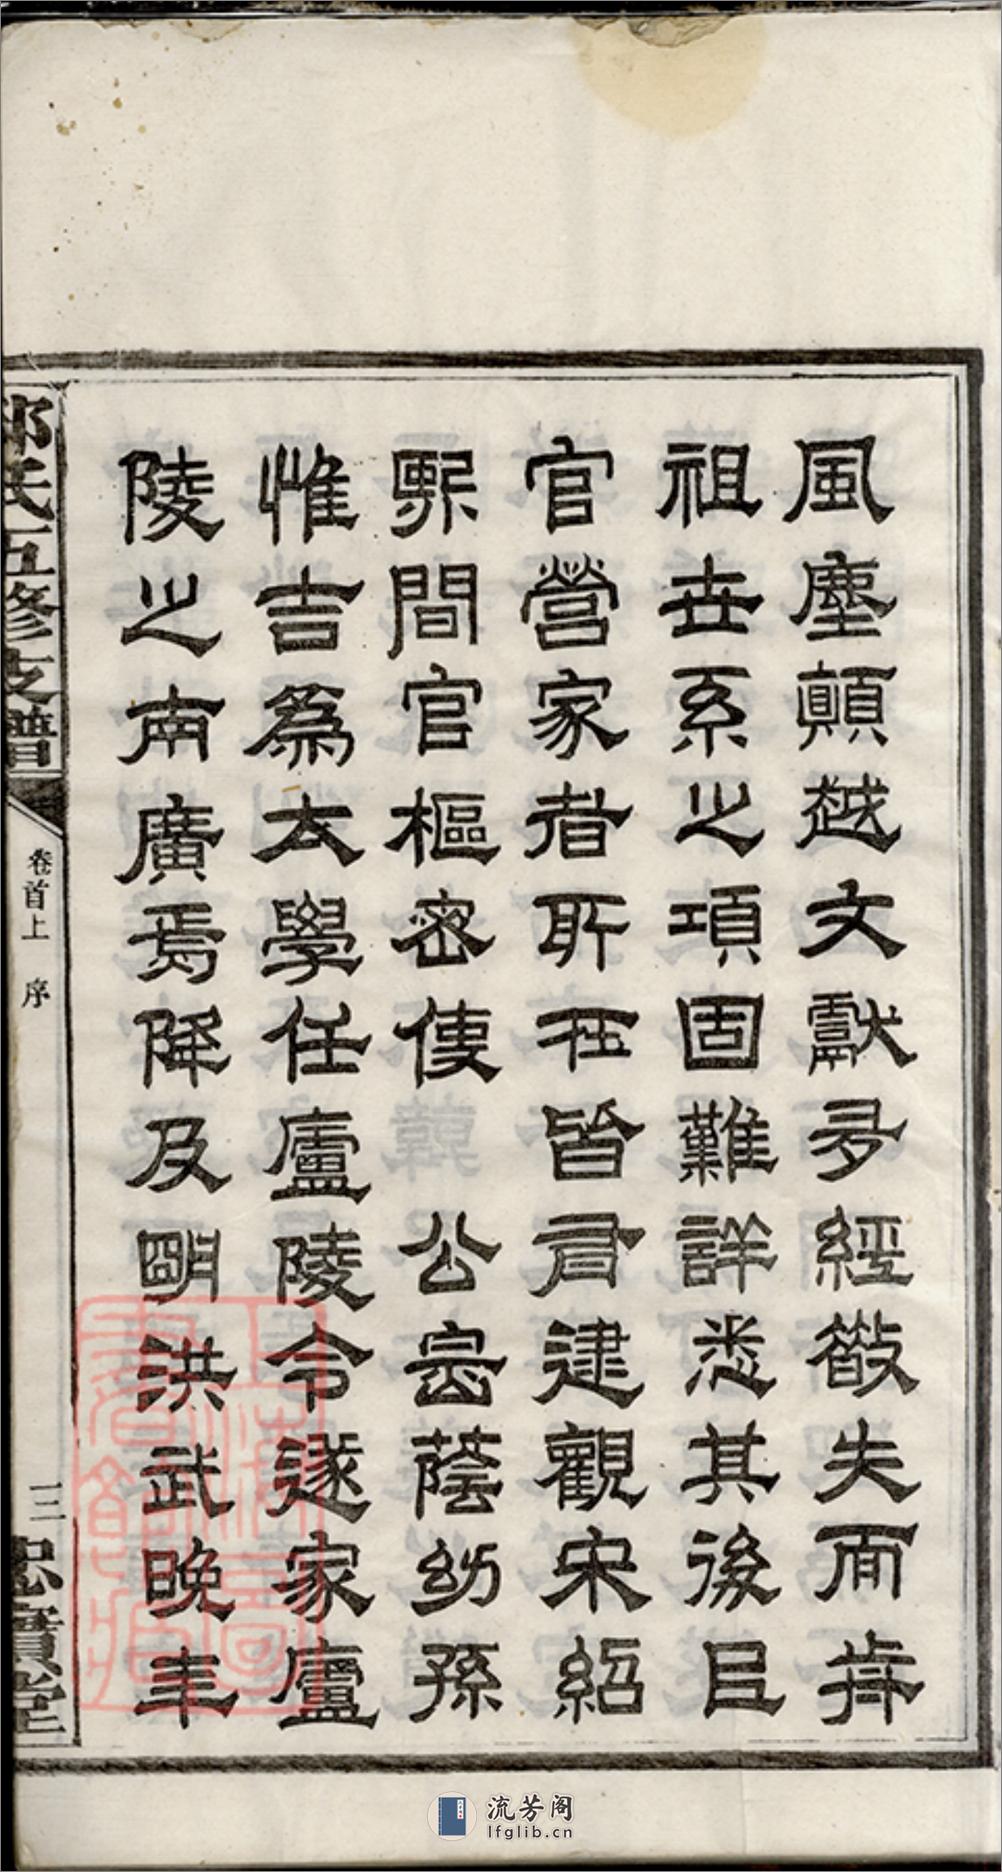 風塵顛越文獻多經散失而歬
祖世系之項固難詳悉其後㠯
官營家者所在皆有逮觀宋紹
熙間官樞密使 公蔭幼孫
惟吉為太學任廬陵令遂家廬
陵之南廣焉降及明洪武晚年
氏五修支譜
卷首上 序
忠實堂
流芳阁
lfglib.cn